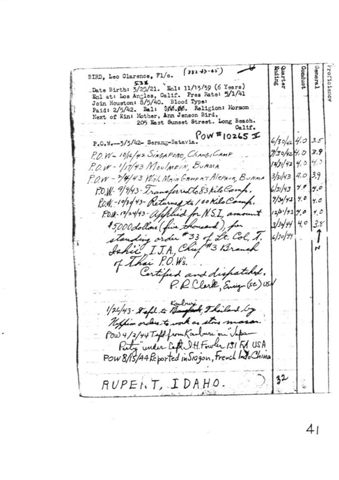 BIRD, Leo Clarence, F1/c. (382-43-65)
538
Date Birth: 3/25/21. Enl: 11/15/39 (6 Years)
Enl at: Los Angeles, Calif. Pres Rate: 5/1/41
Join Houston: 8/5/40. Blood Type:
Paid: 2/5/42. Bal: Religion: Mormon
Next of Kin: Mother, Ann Janson Bird.
205 East Sunset Street. Long Beach.
Calif.
POW #10265 I
P.O.W.-3/5/42- Serang-Batavia.
P.O.W.-10/11/42 SINGAPORE, CHANGI CAMP
P.O.W.-1/17/43 MOULMEIN, BURMA
P.O.W.- BURMA
P.O.W.- Transferred to 83 Kilo Camp.
P.O.W.- Returned to 100 Kilo Camp.
P.O.W.- Applied for N.S.I. amount
$5000 dollars (five thousand), per
standing order #33 of Lt. Col. Y.
I.J.A. Chief #3 Branch
of Thai P.O.Ws.
Certified and dispatched.
P.R. Clark, Ensign (SC) USN
1/22/43- Tsfd. to Thailand by
Nippon orders to work as
POW 4/2/44 Tsfd from Kanburi in Japan
Party under Capt. I.H. Fowler 131 FA USA
POW 8/15/44 Reported in Saigon, French Indo China
RUPERT, IDAHO.
Quarter Ending
Conduct
General
Proficiency
6/30/42 4.0 3.5
9/30/42 4.0 3.9
12/31/42 4.0 4.0
3/31/43 4.0 3.9
6/30/43 4.0 4.0
9/30/43 4.0 4.0
12/31/43 4.0 4.0
3/31/44 4.0 3.8
6/30/44
32
41